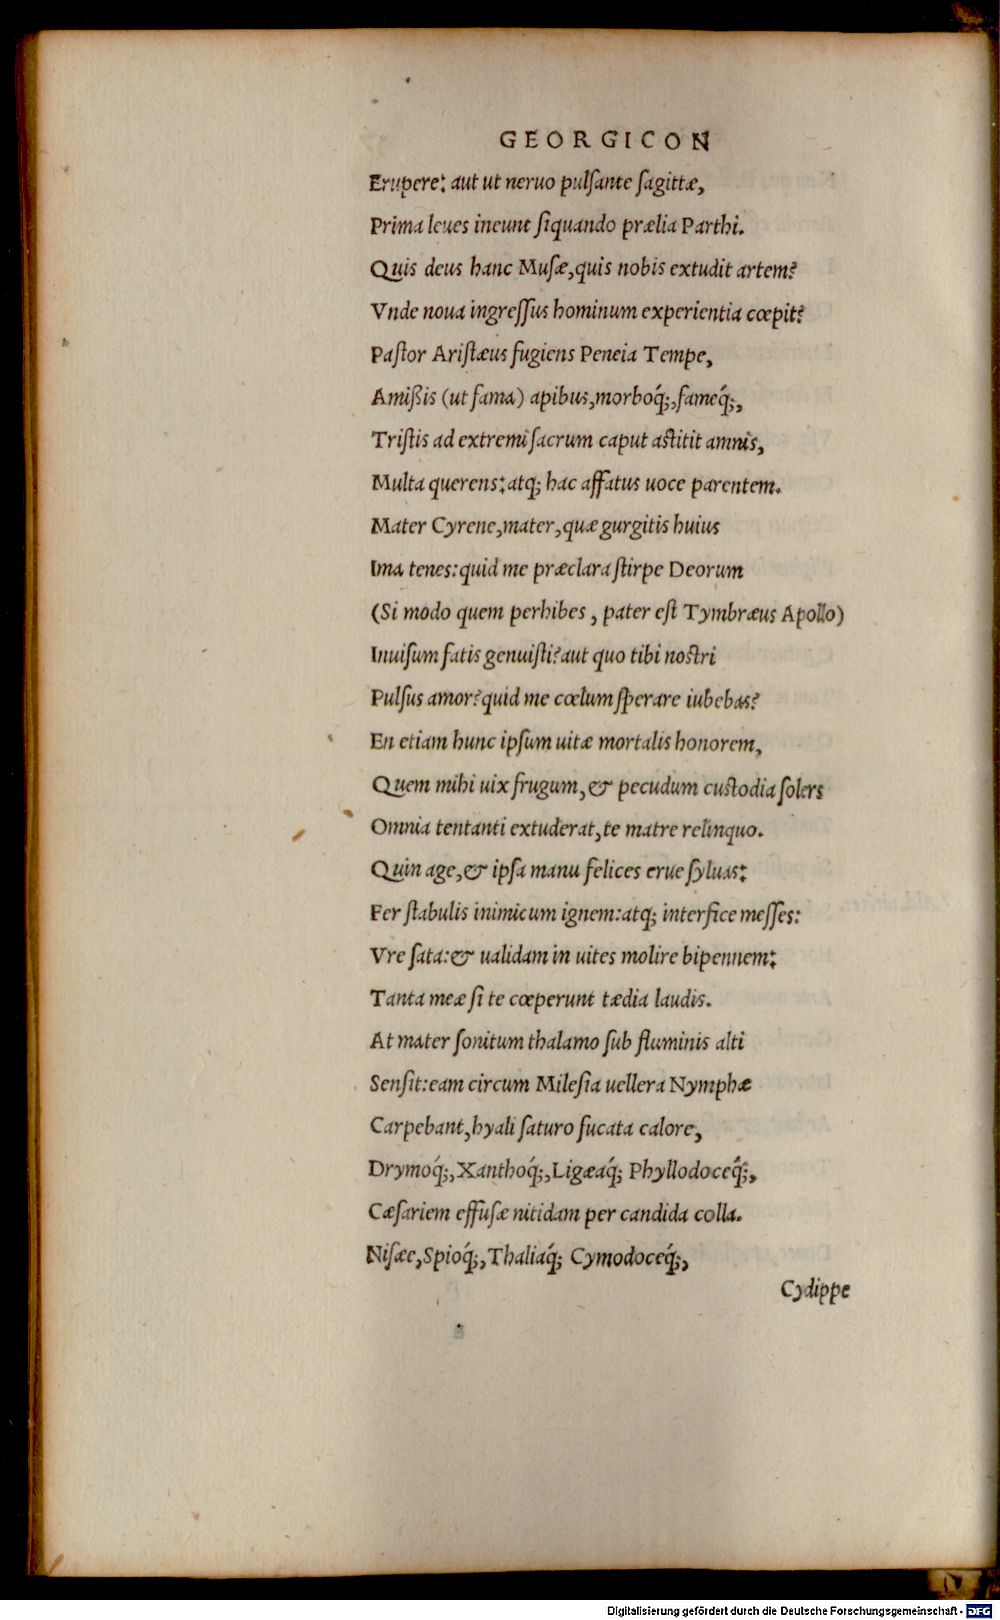 GEORGICON
Erupere: aut ut neruo pulſante ſagittæ,
Prima leues ineunt ſiquando prælia Parthi.
Quis deus hanc Muſæ,quis nobis extudit artem?
Vnde noua ingreſſus hominum experientia cœpit?
Paſtor Ariſtæus fugiens Peneia Tempe,
Amißis (ut fama) apibus,morboq́;,fameq́;,
Triſtis ad extremi ſacrum caput aſtitit amnis,
Multa querens:atq; hac affatus uoce parentem.
Mater Cyrene,mater,quæ gurgitis huius
Ima tenes:quid me præclara ſtirpe Deorum
(Si modo quem perhibes , pater eſt Tymbræus Apollo)
Inuiſum fatis genuiſti?aut quo tibi noſtri
Pulſus amor?quid me cœlum ſperare iubebas?
En etiam hunc ipſum uitæ mortalis honorem,
Quem mihi uix frugum,& pecudum cuſtodia ſolers
Omnia tentanti extuderat,te matre relinquo.
Quin age,& ipſa manu felices erue ſyluas:
Fer ſtabulis inimicum ignem:atq; interfice meſſes:
Vre ſata:& ualidam in uites molire bipennem:
Tanta meæ ſi te cœperunt tædia laudis.
At mater ſonitum thalamo ſub fluminis alti
Senſit:eam circum Mileſia uellera Nymphæ
Carpebant,hyali ſaturo fucata calore,
Drymoq́;,Xanthoq́;,Ligæaq́; Phyllodoceq́;,
Cæſariem effuſæ nitidam per candida colla.
Niſæe,Spioq́;,Thaliaq́; Cymodoceq́;,
Cydippe
Digitalisierung gefördert durch die Deutsche Forschungsgemeinschaft - DFG